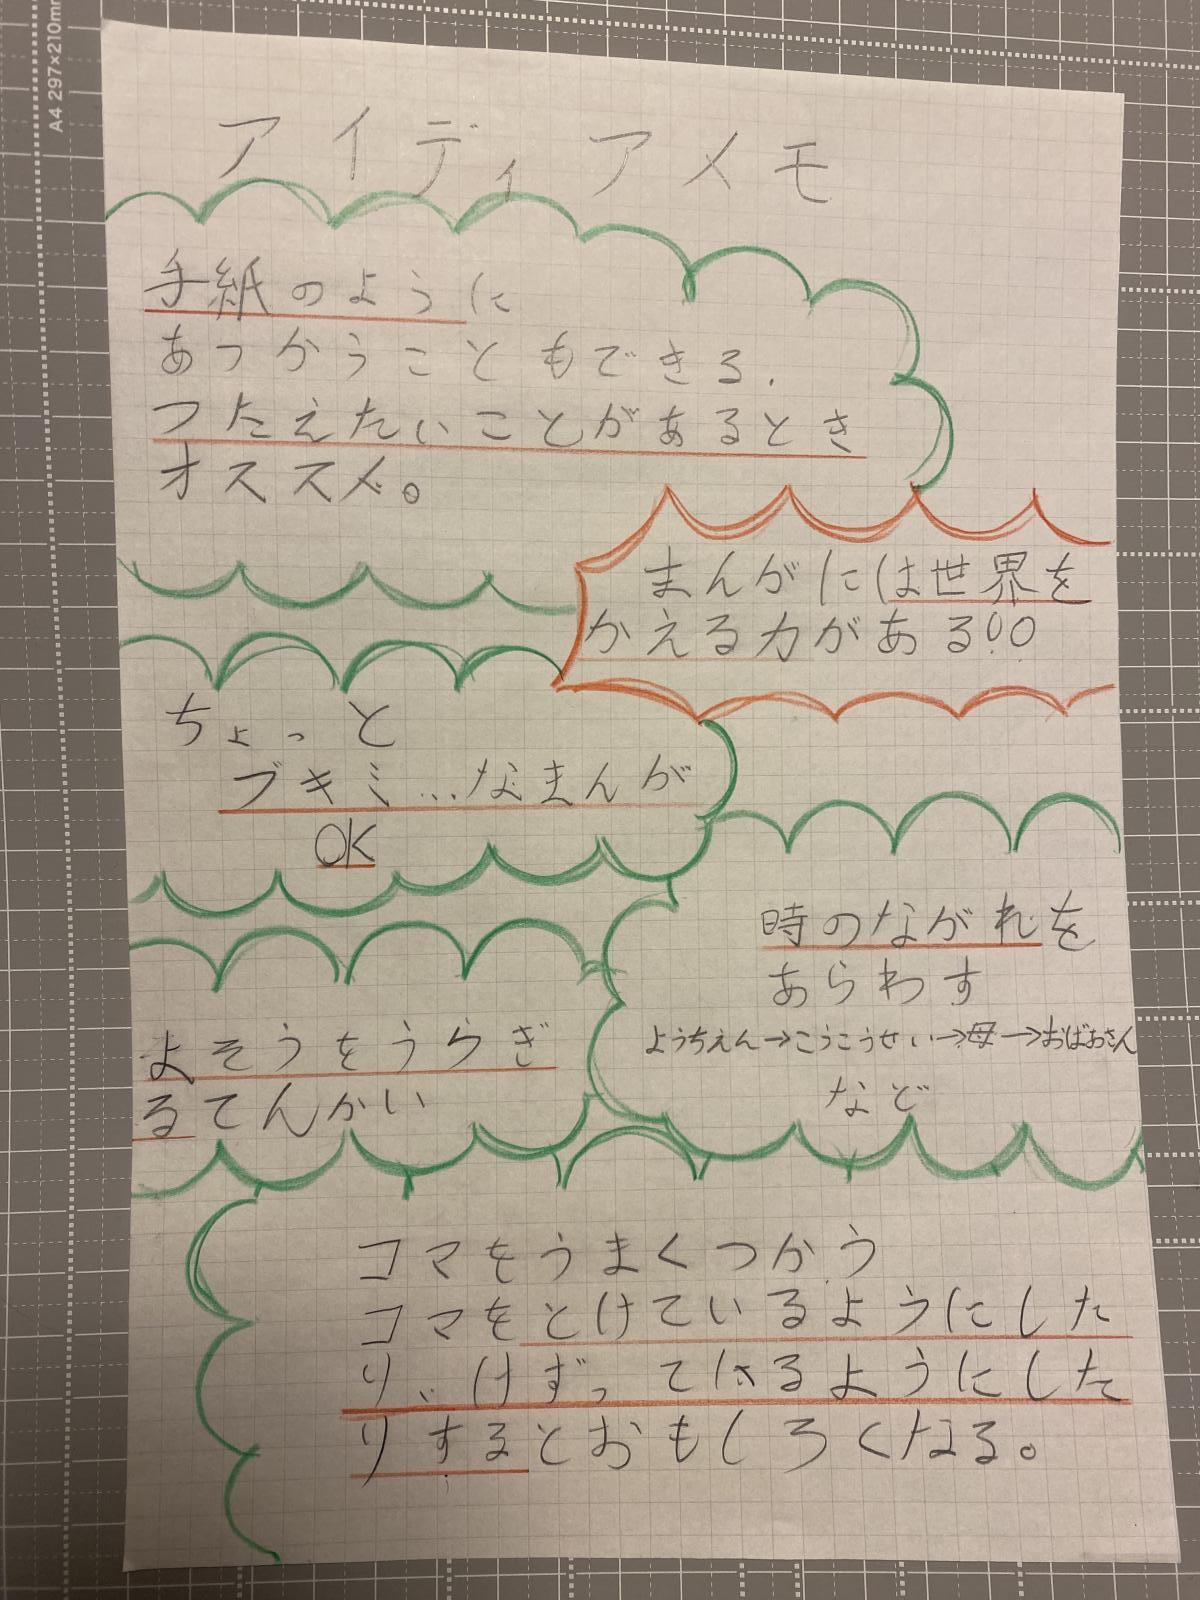 A4 297×210mm
アイディアメモ
手紙のように
あつかうこともできる.
つたえたいことがあるとき
オススメ。
まんがには世界を
かえる力がある!!
ちょっと
ブキミ...なまんが
OK
時のながれを
あらわす
ようちえん→こうこうせい→母→おばあさん
など
よそうをうらぎ
るてんかい
コマをうまくつかう
コマをとけているようにした
り、けずってほるようにした
りするとおもしろくなる。